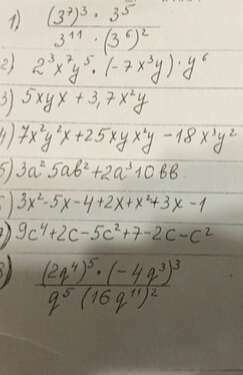 1) (3⁷)³ · 3⁵ / 3¹¹ · (3⁶)²
2) 2³x⁷y⁵ · (-7x³y) · y⁶
3) 5xyx + 3,7x²y
4) 7x²y²x + 25xyx²y - 18x³y²
5) 3a² 5ab² + 2a³ 10bb
6) 3x² - 5x - 4 + 2x + x² + 3x - 1
7) 9c⁴ + 2c - 5c² + 7 - 2c - c²
8) (2q⁴)⁵ · (-4q³)³ / q⁵ (16q¹¹)²